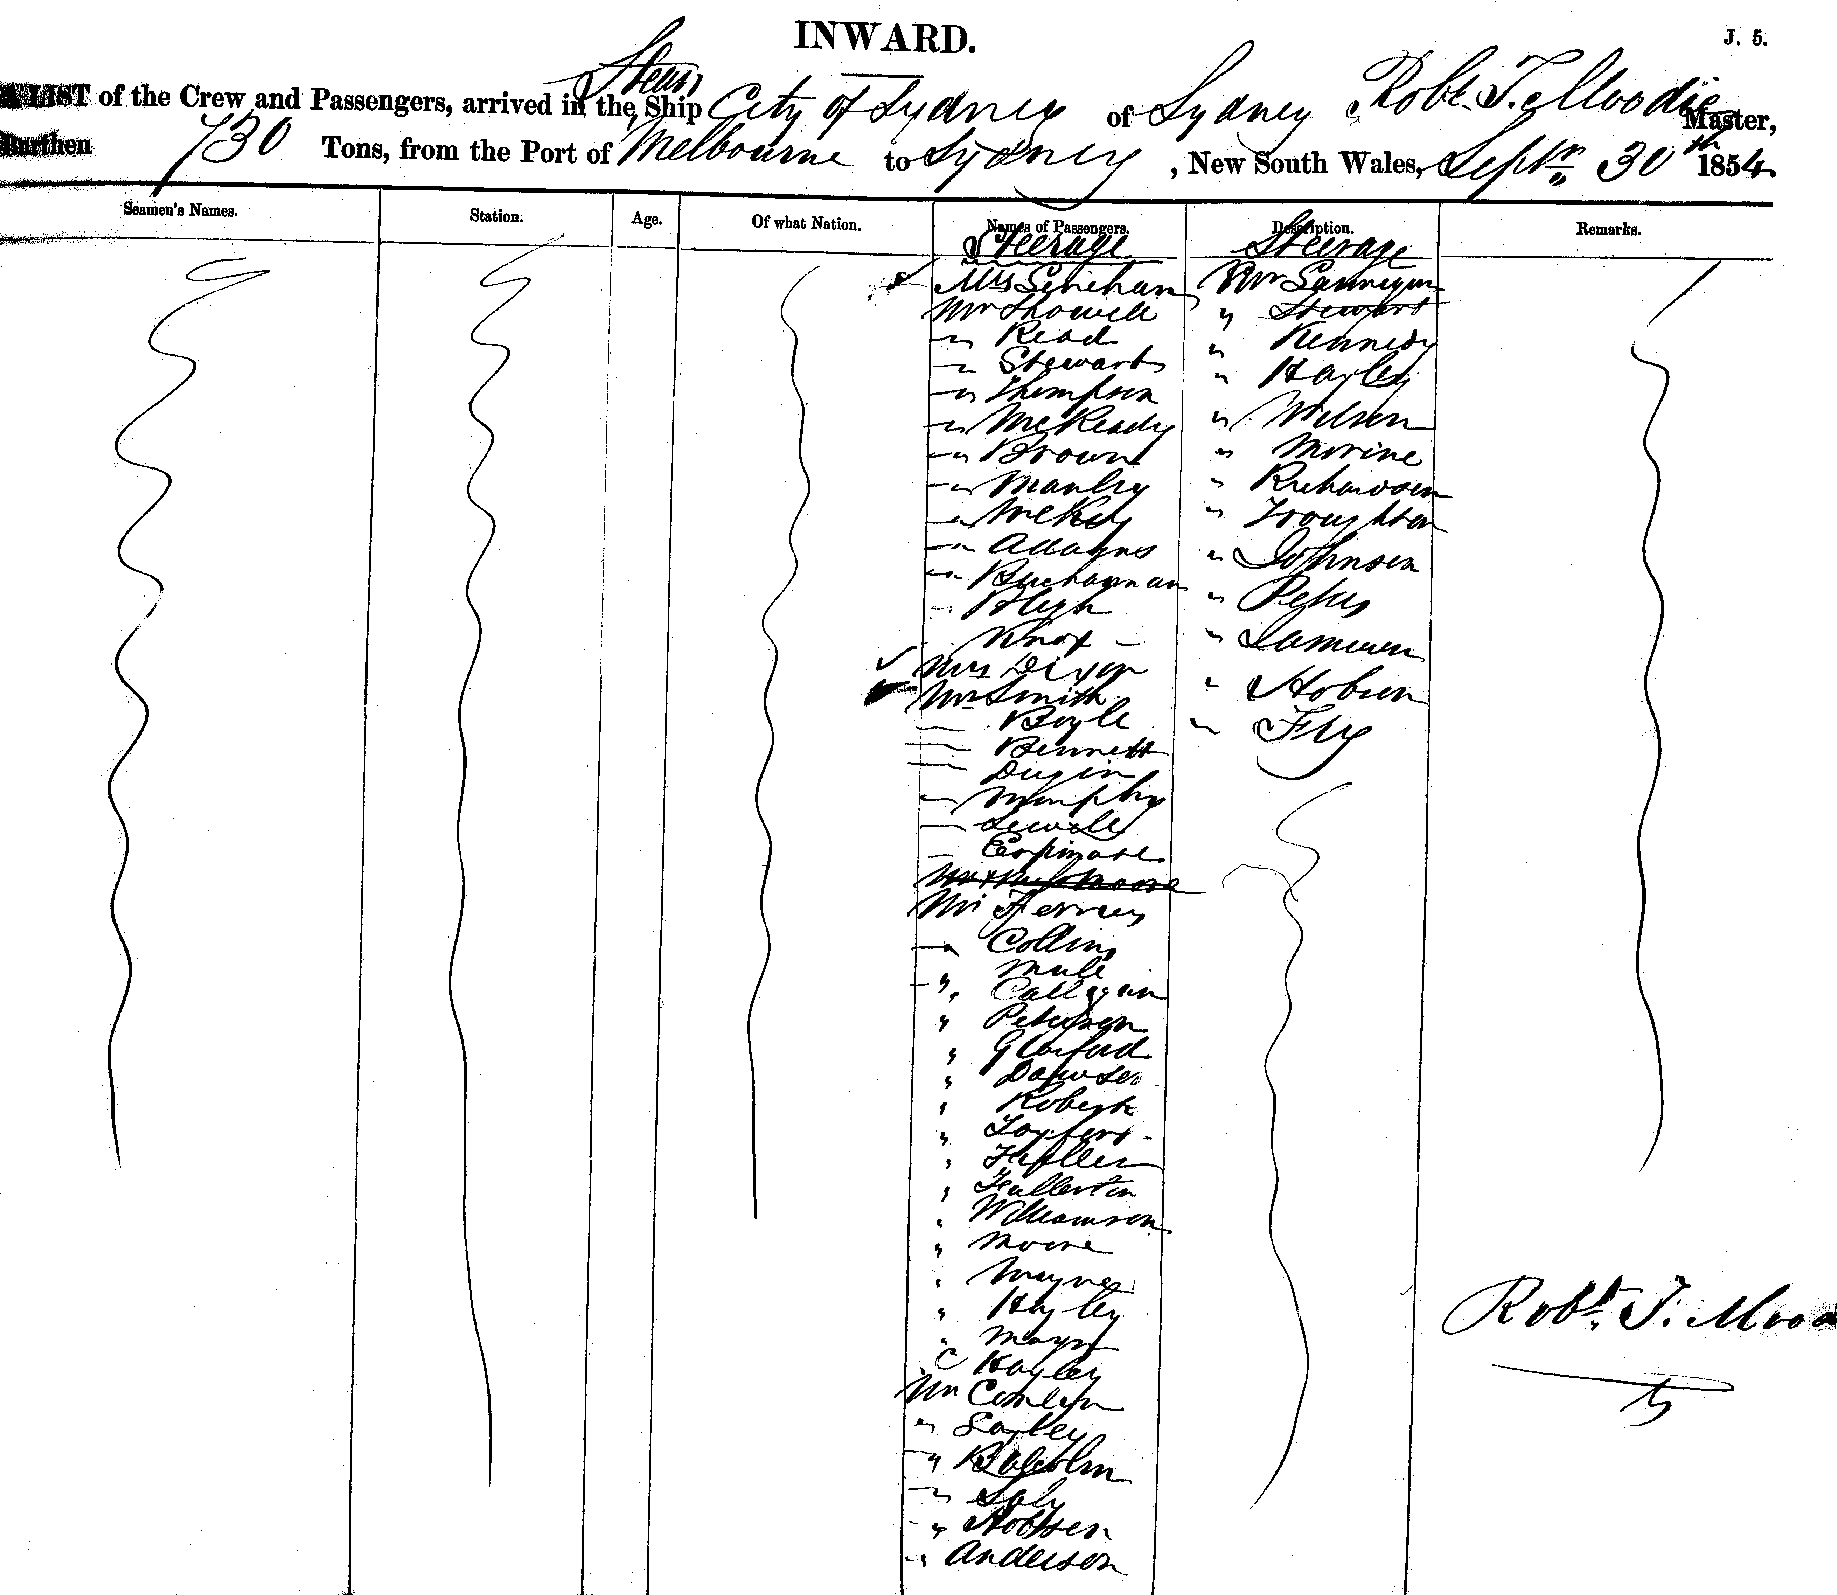 INWARD.
J. 5.
LIST of the Crew and Passengers, arrived in the Steam Ship City of Sydney of Sydney Robt. T. Moodie Master,
Burthen 730 Tons, from the Port of Melbourne to Sydney, New South Wales, Septr. 30th 1854
Seamen's Names. Station. Age. Of what Nation. Names of Passengers. Description. Remarks.
Steerage Steerage
Mrs Mr
Mr " Stewart
" Read " Kennedy
" Stewart " Hayley
" Thompson " Wilson
" McReady " Morine
" Brown " Richardson
" Manley " Troughton
" McKay " Johnson
" Adams " 
" Buchannan " 
" Bligh " Hobson
Knox - " Fry
Mrs Dixon
Mr Smith
Boyle
Bennett
Dugin
Murphy
Sewell
Mr & Mrs Moore
Mr
" Collins
Mule
" Callagan
" Peterson
"
" Dawson
" Roberts
"
" Fuller
" Fullerton
" Williamson
" Moore
" Mayne
" Hayley
"
C Hayley
Mr
"
" Malcolm
"
" Hobson
" Anderson
Robt. T. Moo